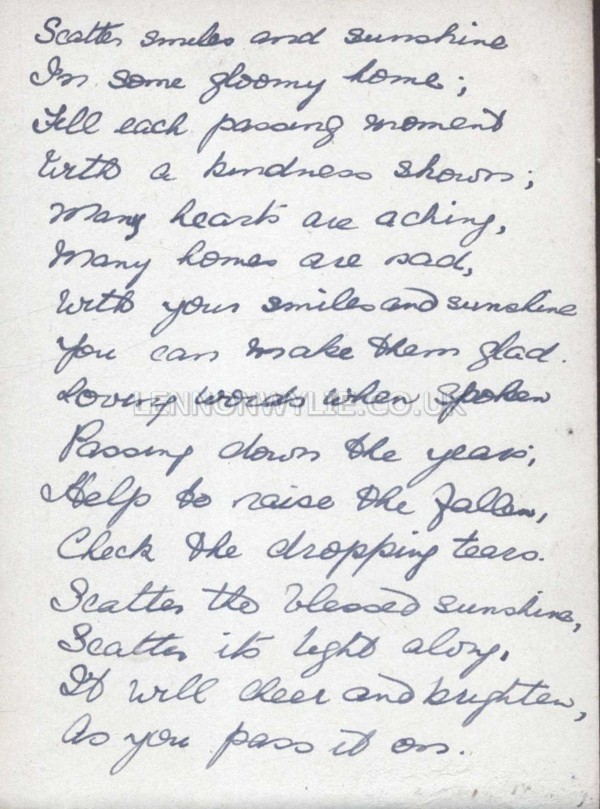 Scatter smiles and sunshine
In some gloomy home;
Fill each passing moment
With a kindness shown;
Many hearts are aching,
Many homes are sad,
With your smiles and sunshine
You can make them glad.
Loving words when spoken
LENNONWYLIE.CO.UK
Passing down the years;
Help to raise the fallen,
Check the dropping tears.
Scatter the blessed sunshine,
Scatter its light along,
It will cheer and brighten,
As you pass it on.